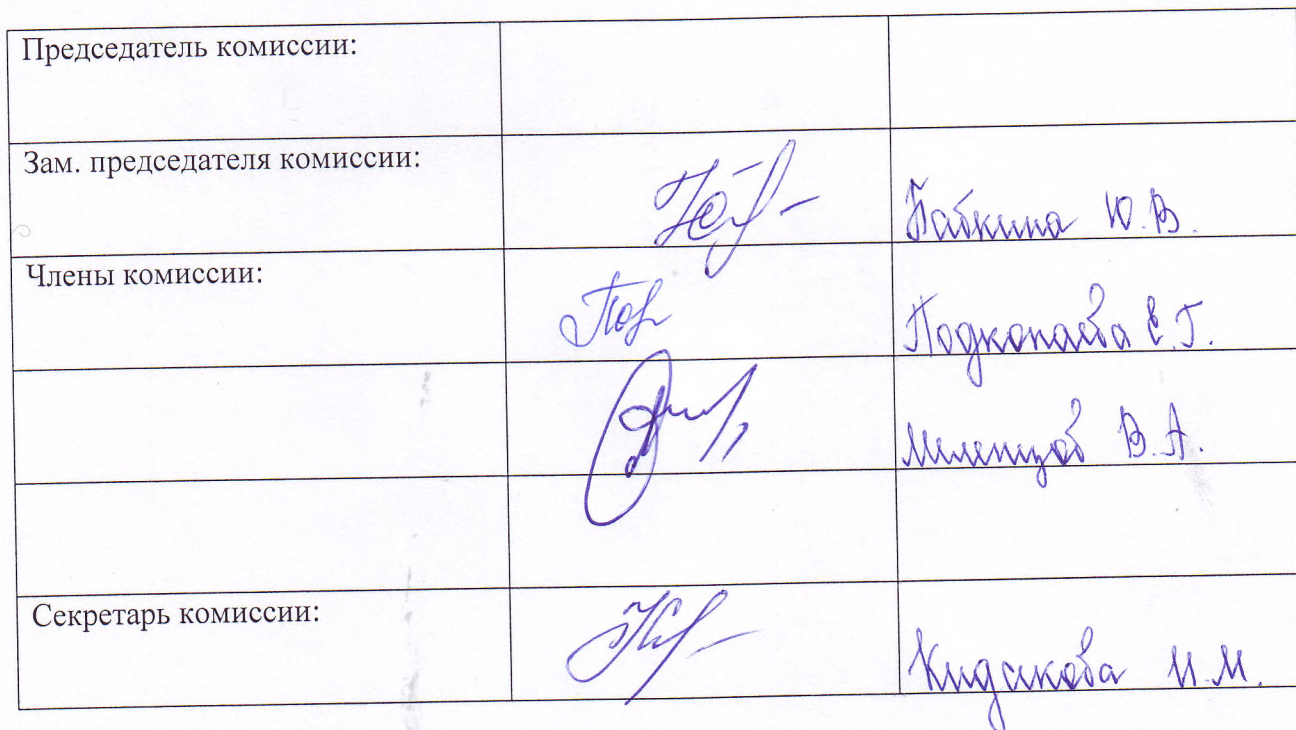 Председатель комиссии:
Зам. председателя комиссии:
Бабкина Ю.В.
Члены комиссии:
Подкопаева Е.Г.
В.А.
Секретарь комиссии:
И.М.